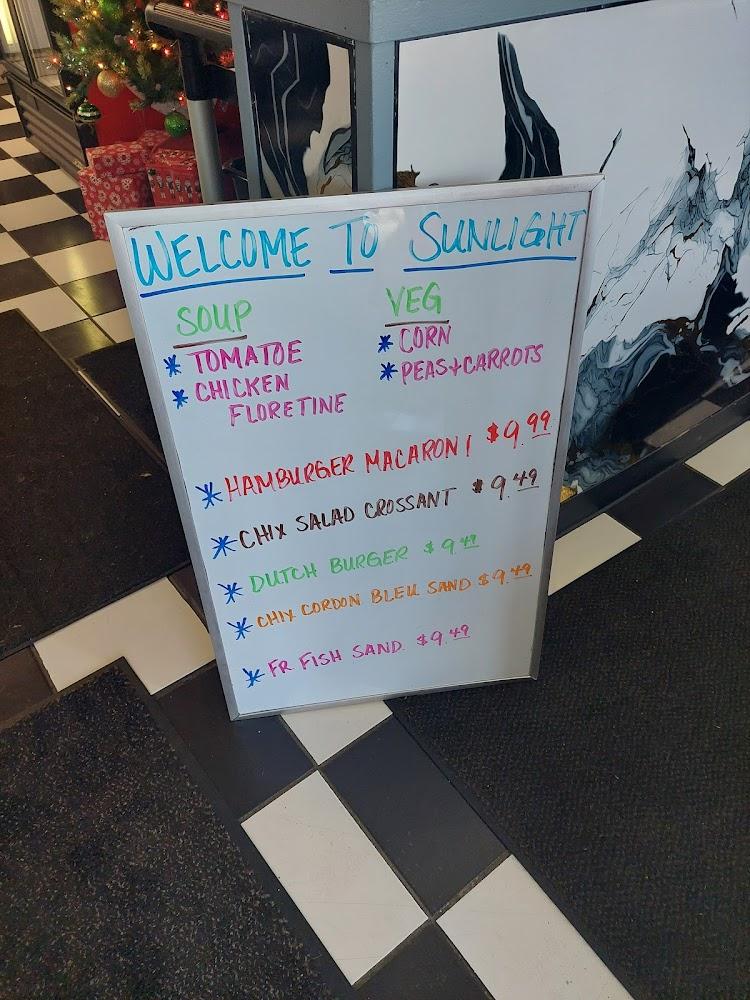 WELCOME TO SUNLIGHT
SOUP
* TOMATOE
* CHICKEN
FLORETINE
VEG
* CORN
* PEAS+CARROTS
* HAMBURGER MACARONI $9.99
* CHIX SALAD CROSSANT $9.49
* DUTCH BURGER $9.49
* CHIX CORDON BLEU SAND $9.49
* FR FISH SAND. $9.49